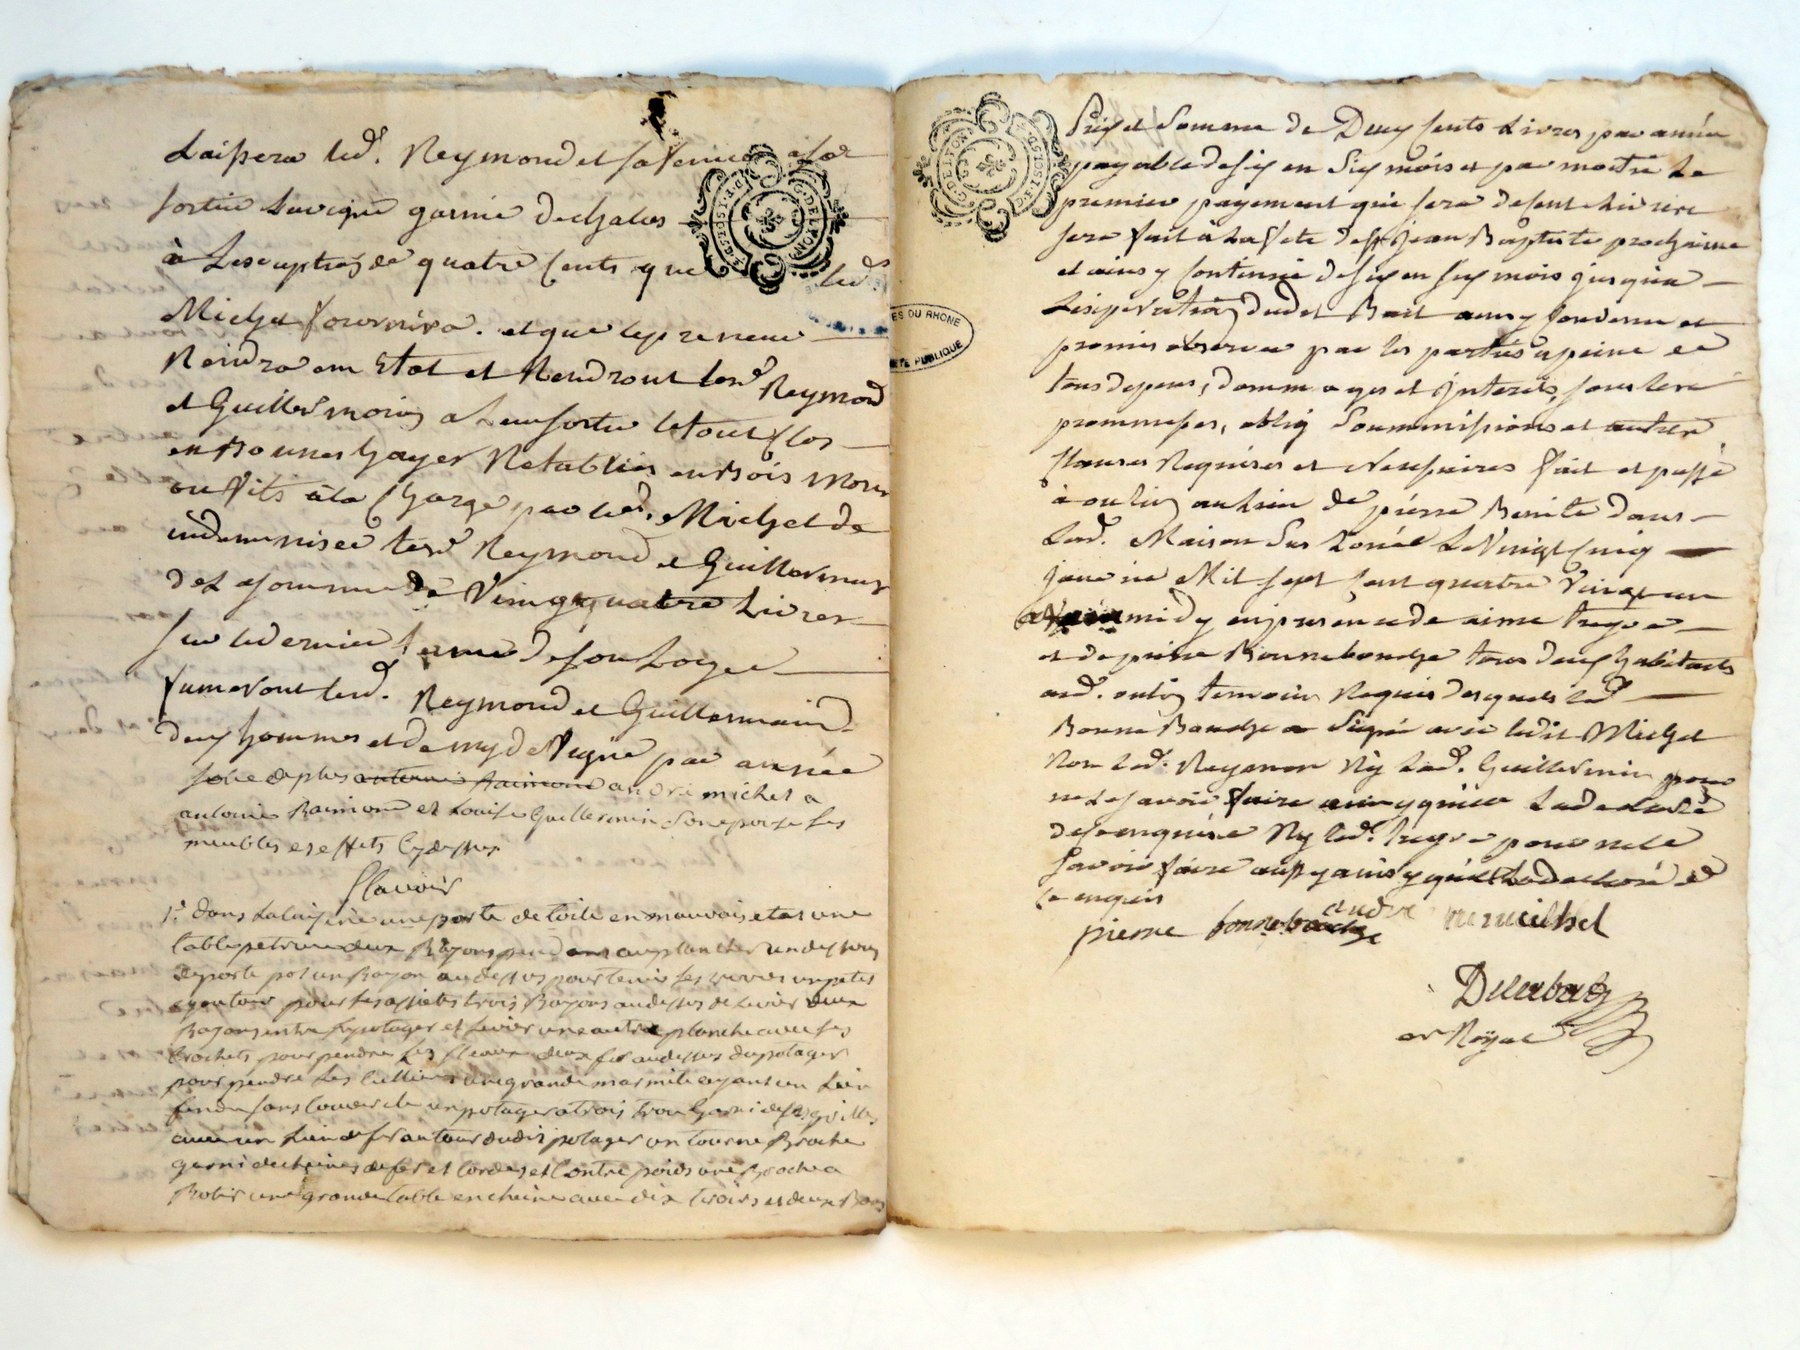 Laissera led. Reymond et sa femme a la
sortie la vigne garnie d'echalas
à Lexception de quatre cents que led.
G. DE LYON
Michel fournira. et que le preneur
Rendra em Etat et Rendront lesd Reymond
et Guillermain a Leur sortie le tout Clos
en Bonnes hayes Retablies en Bois mort
ou vifs à la Charge par led. Michel de
indemniser lesd Reymond et Guillermin
de La somme de Vingtquatre Livres
sur le dernier terme de son Loyer
fumeront lesd. Reymond et Guillermain
deux hommes et demy de Vigne par année
de plus antoine Raimond andré michel a
antoine Raimond et Louise Guillermin les
meubles et effets Cydessus
Scavoir
1.° dans La cuisine une porte de toile en mauvais etat une
table petriere deux Rayons au plancher un dessous
de porte pot un Rayon au dessus pour tenir les verres un petit
egoutoir pour les assietes trois Rayons au dessus de Levier deux
Rayons entre le potager et Levier une autre planche avec ses
Crochets pour pendre les deux fer au dessus du potager
pour pendre Les Cuilliers une grande marmite ayant un Lien
fendu sans Couvercle un potager a trois trou Garni de ses grilles
avec un Lien de fer autour dudit potager un tourne Broche
garni de cheines de fer et Cordes et Contre poids une Broche a
Rotir une grande table en chene avec dix tiroirs et deux Bancs
G. DE LYON
Prix et Somme de Deux Cents Livres par année
payable de six en Six mois et par moitié Le
premier payement qui sera de Cent Livres
sera fait à La fete de St Jean Baptiste prochaine
et ainsy Continué de six en six mois jusqua
Lexpiration dudit Bail ainsy Convenu et
ES DU RHONE
PUBLIQUE
promis observer par les parties a peine de
tous depens, dommages et interets, sous leurs
promesses, oblig Soummissions et autres
Clauses Requises et Necessaires fait et passé
à oulin au Lieu de pierre Benite dans
Lad. Maison Sus Le Vingt Cinq
janvier Mil sept Cent quatre Vingt un
midy en presence de aimé Fregre
et de pierre Bonnebouche tous deux habitants
aud. oulin temoins Requis desquels led
Bonne Bouche a Signé avec ledit Michel
Non led. Reymon Ny Lad. Guillermin pour
ne Le savoir faire ainsy quils Lad declaré
de ce enquis Ny led. Fregre pour ne le
Savoir faire aussy ainsy quil La declaré de
Ce enquis
pierre bonnebouche andre michel
Delabat
Royal